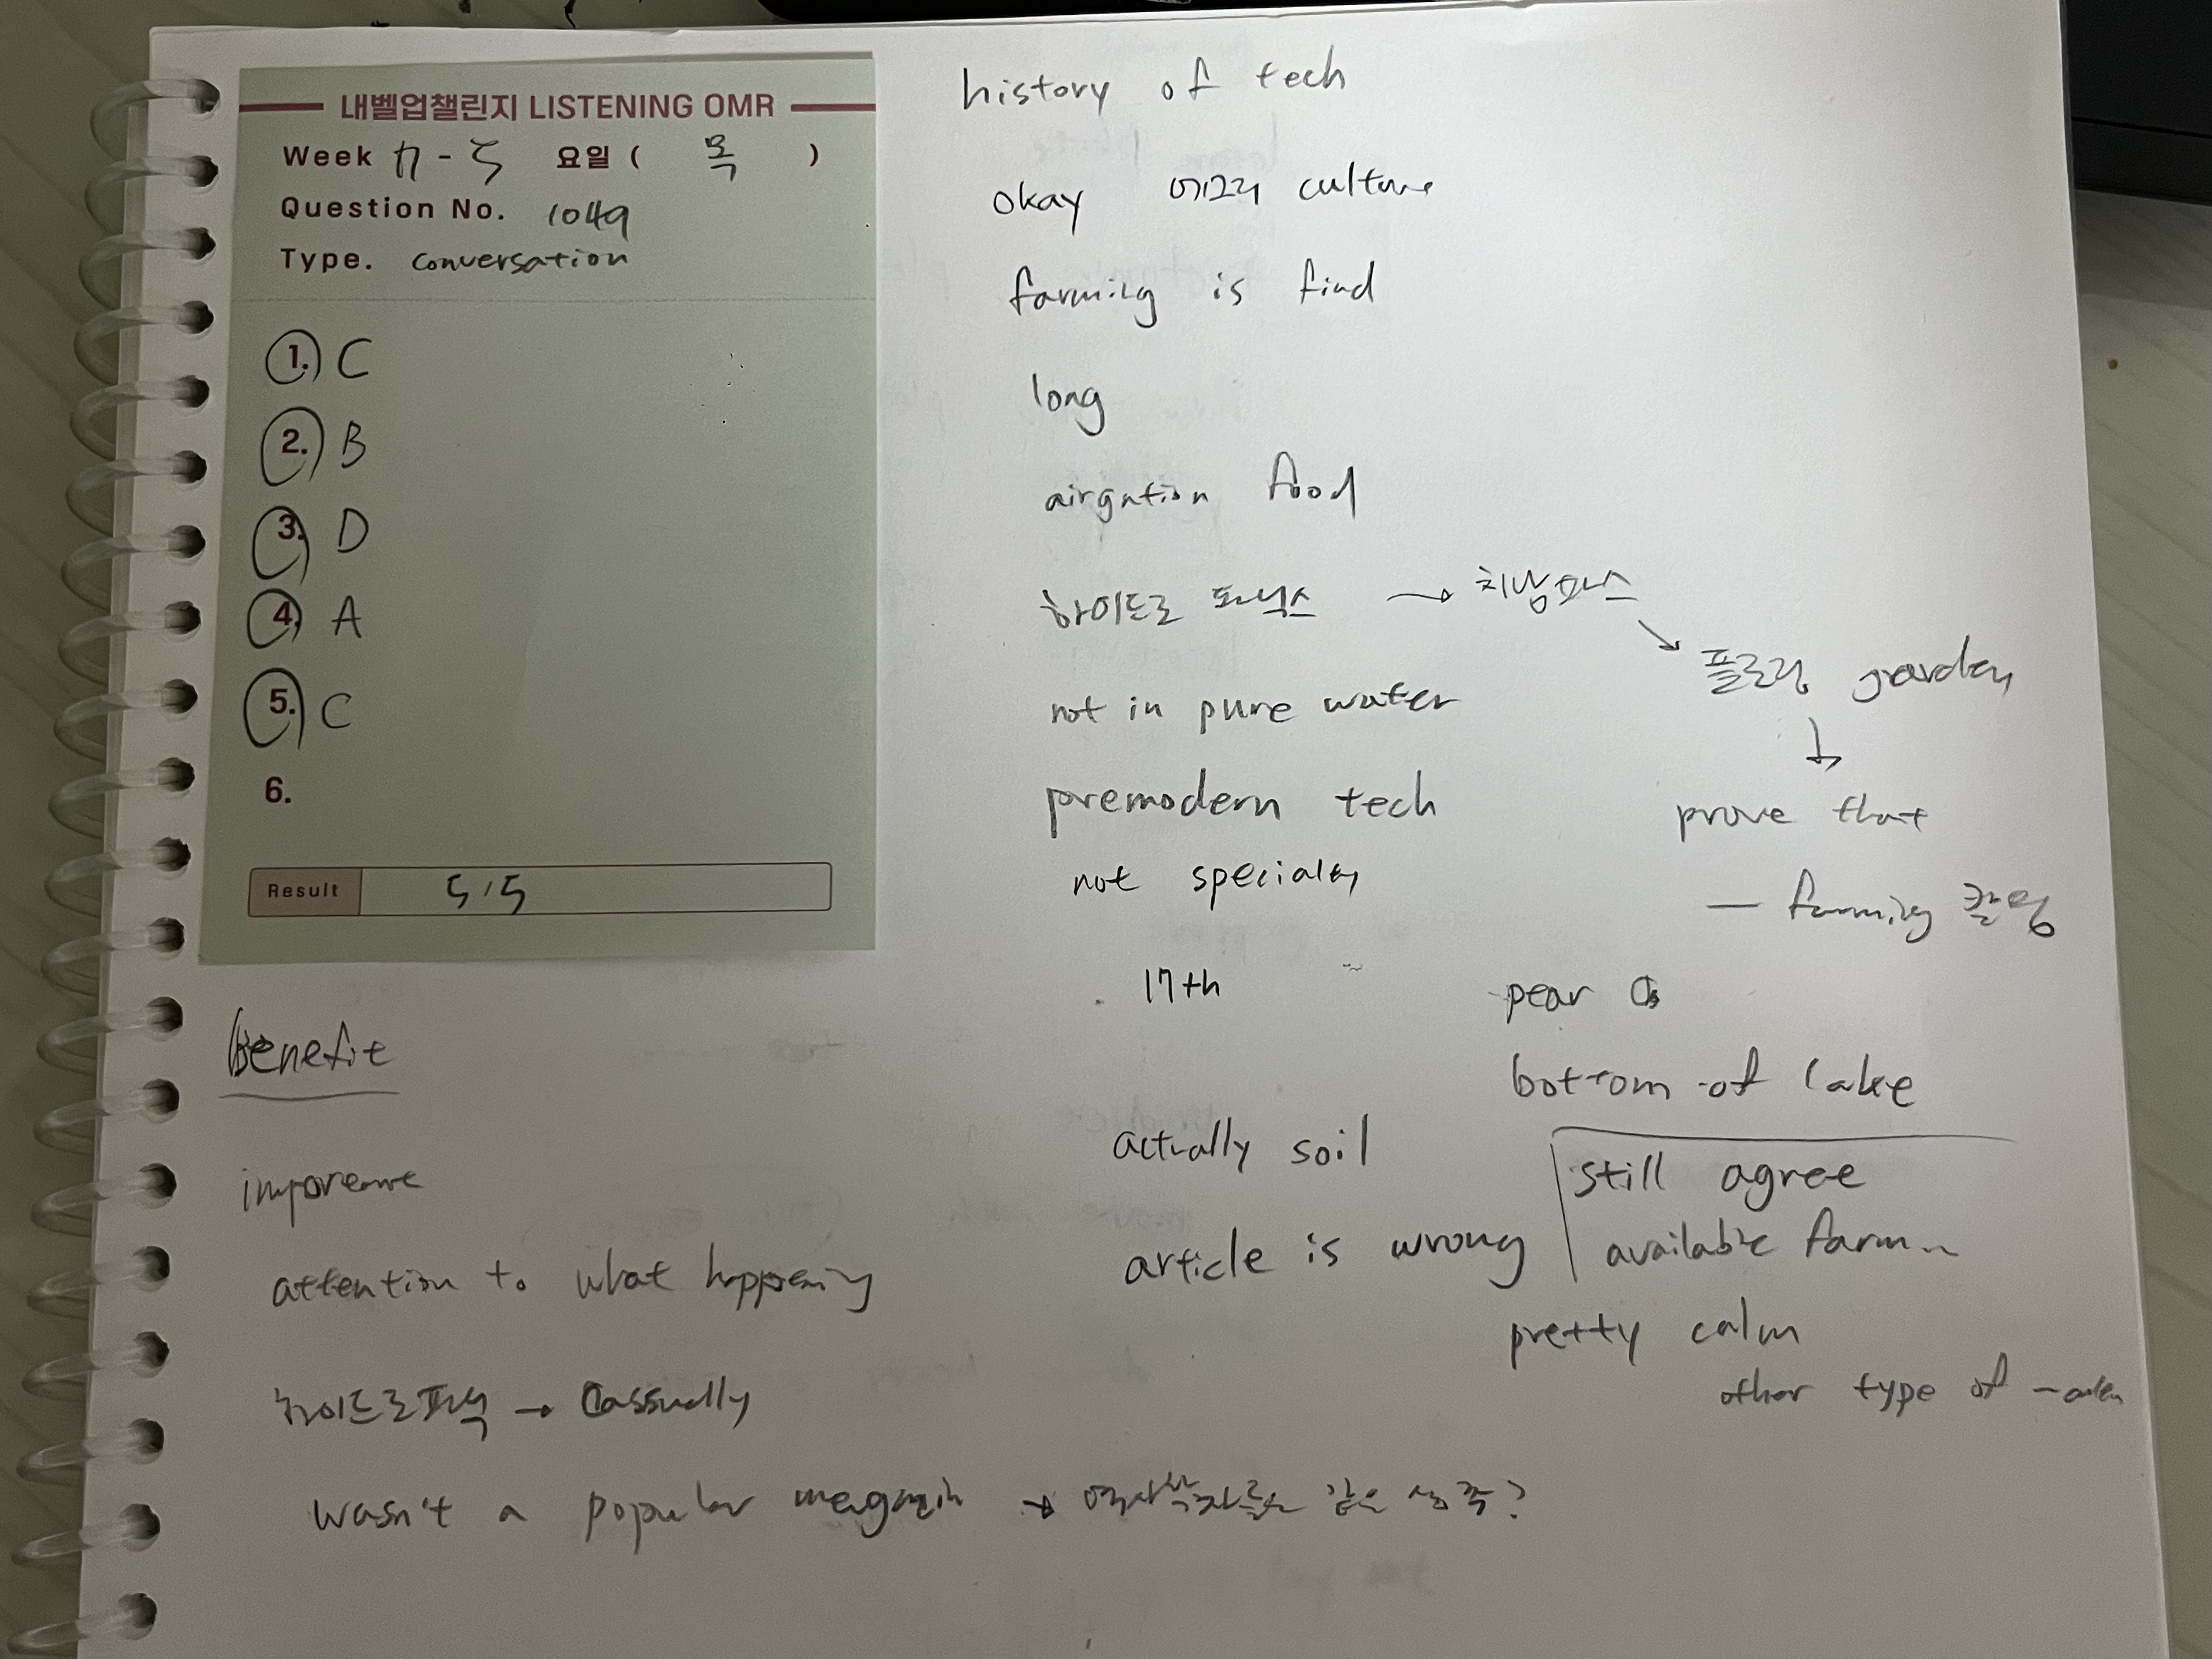 내벨업챌린지 LISTENING OMR
Week 17-5 요일 ( 목 )
Question No. 1049
Type. conversation
1. C
2. B
3. D
4. A
5. C
6.
Result 5/5
history of tech
okay 어그리 culture
farming is find
long
airgation food
하이드로 포닉스 → 치남파스
플로링 garden
not in pure water
premodern tech
prove that
not specialty
— farming
17th
pear
bottom of lake
actually soil
article is wrong
still agree
available farm
pretty calm
other type of
benefit
attention to what happening
하이드로포닉 → Cassually
wasn't a popular → 역사학자들은 같은